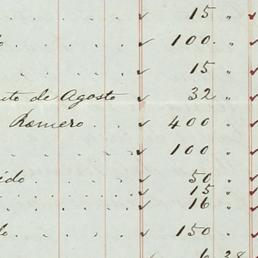 ✓ 15 "
. . . ✓ 100. "
✓ 15 "
de Agosto ✓ 32 "
Romero . . ✓ 400 "
. . . ✓ 100 "
ido . . . . ✓ 50 "
. . . . ✓ 15 "
. . . . ✓ 16 "
lo. . . . ✓ 150 "
6 28